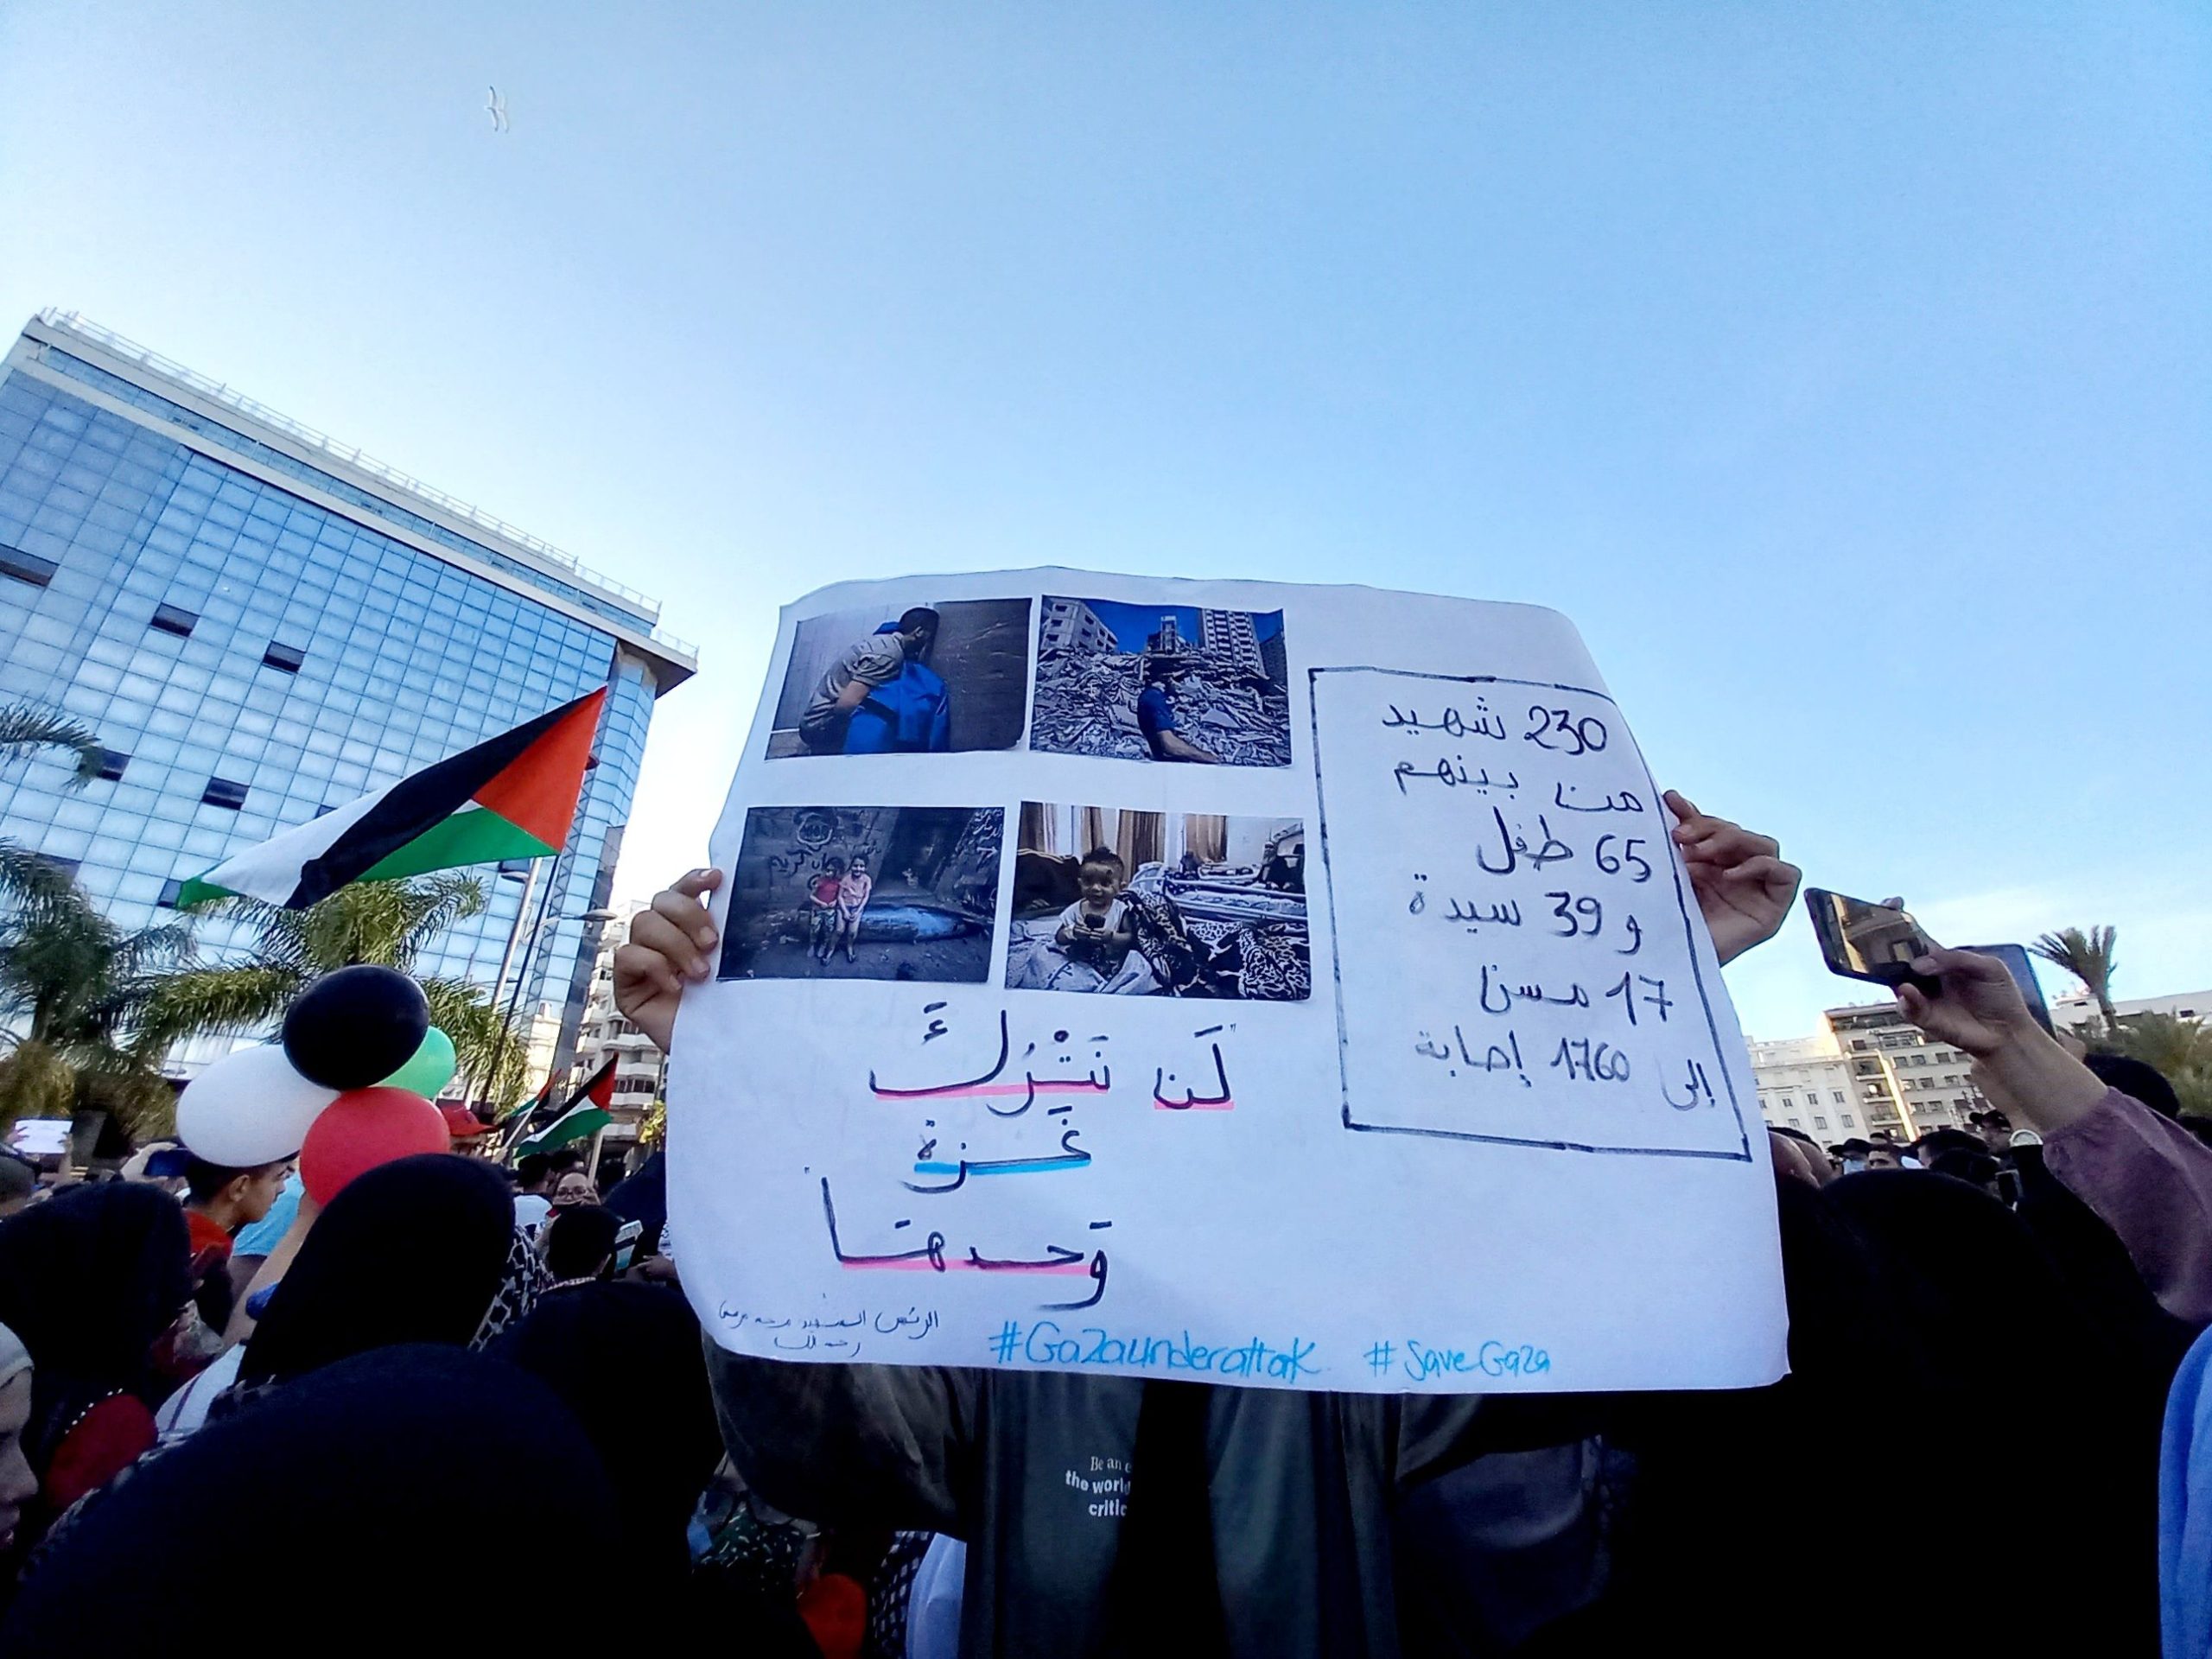 230 شهيد
من بينهم
65 طفل
و 39 سيدة
17 مسن
إلى 1760 إصابة
"لَن نَتْرُكَ
غَزة
وَحدهَا"
الرئيس الشهيد محمد مرسي
رحمه الله
#Gazaunderattak #SaveGaza
Be an
the world
critic